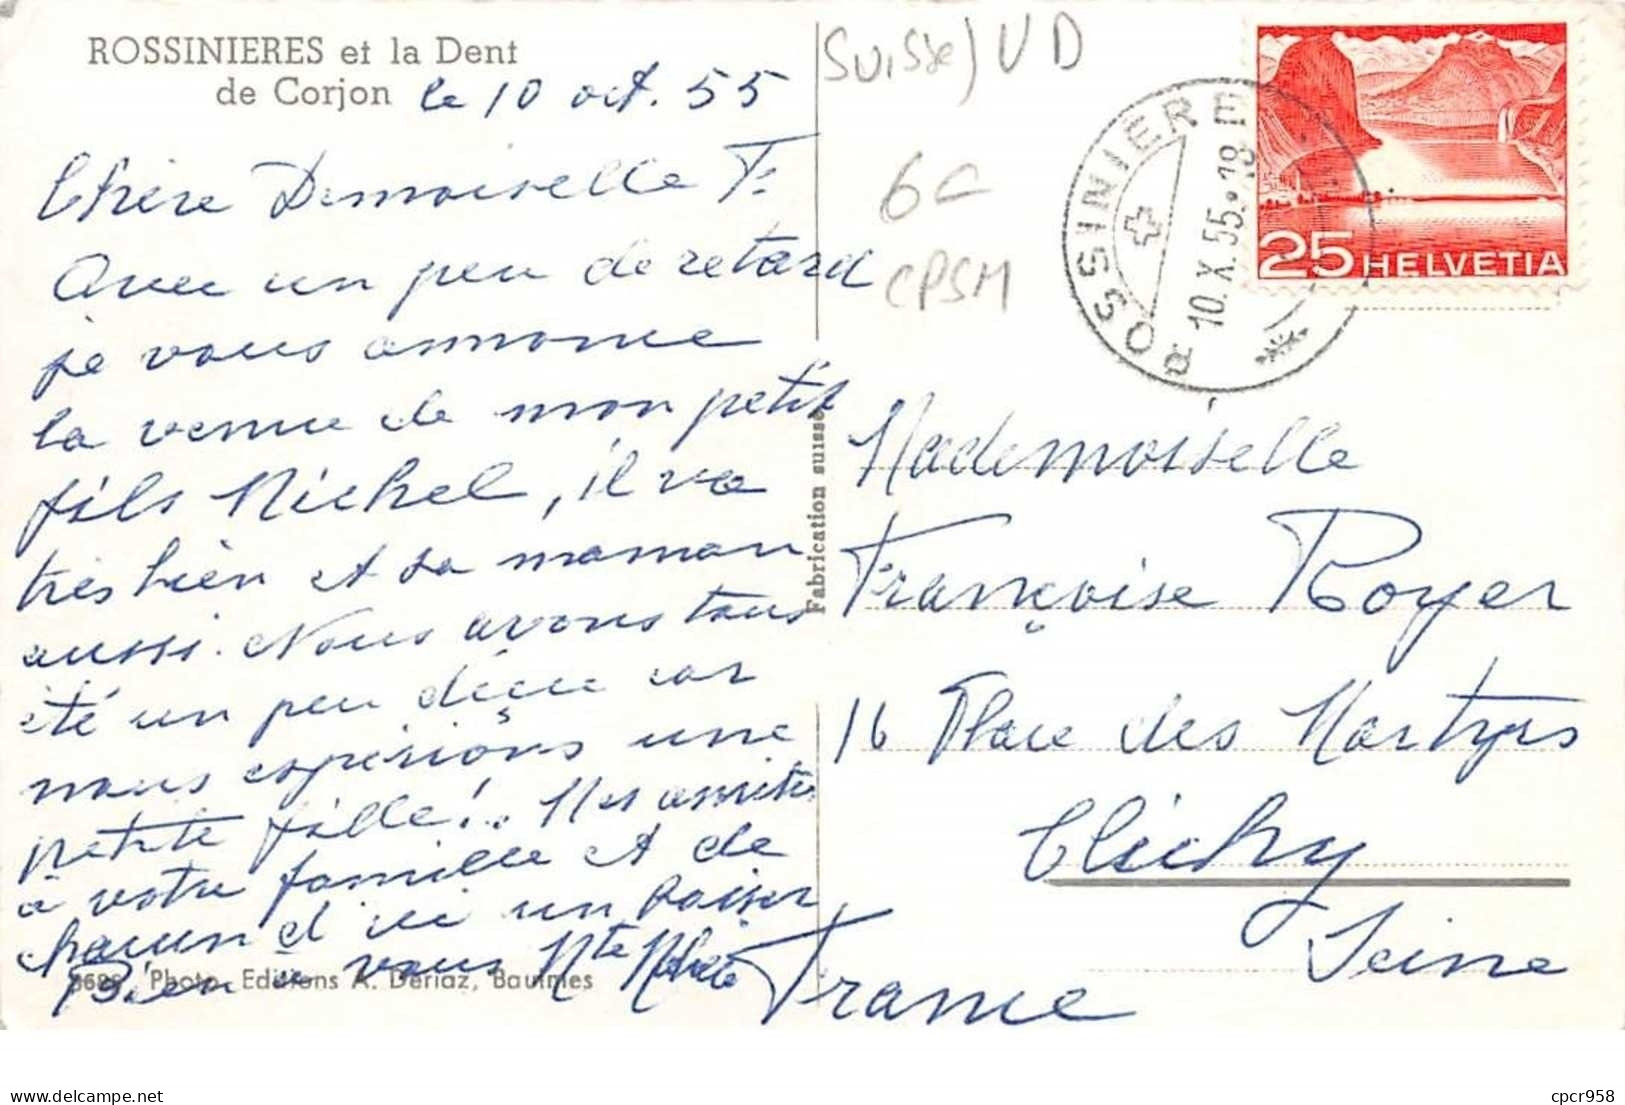 ROSSINIERES et la Dent
de Corjon
le 10 oct. 55
Chère Demoiselle F.
Avec un peu de retard
je vous annonce
la venue de mon petit
fils Michel, il va
très bien et sa maman
aussi. Nous avons tous
été un peu déçu car
nous espérions une
petite fille!. Mes amitiés
à votre famille et de
chacun d'ici un baiser
Bien à vous
5688 Photo. Editions A. Dériaz, Baulmes
Fabrication suisse
Suisse) VD
6C
CPSM
ROSSINIERE
10.X.55.-18
25 HELVETIA
Mademoiselle
Françoise Royer
16 Place des Martyrs
Clichy
Seine
France
cpcr958